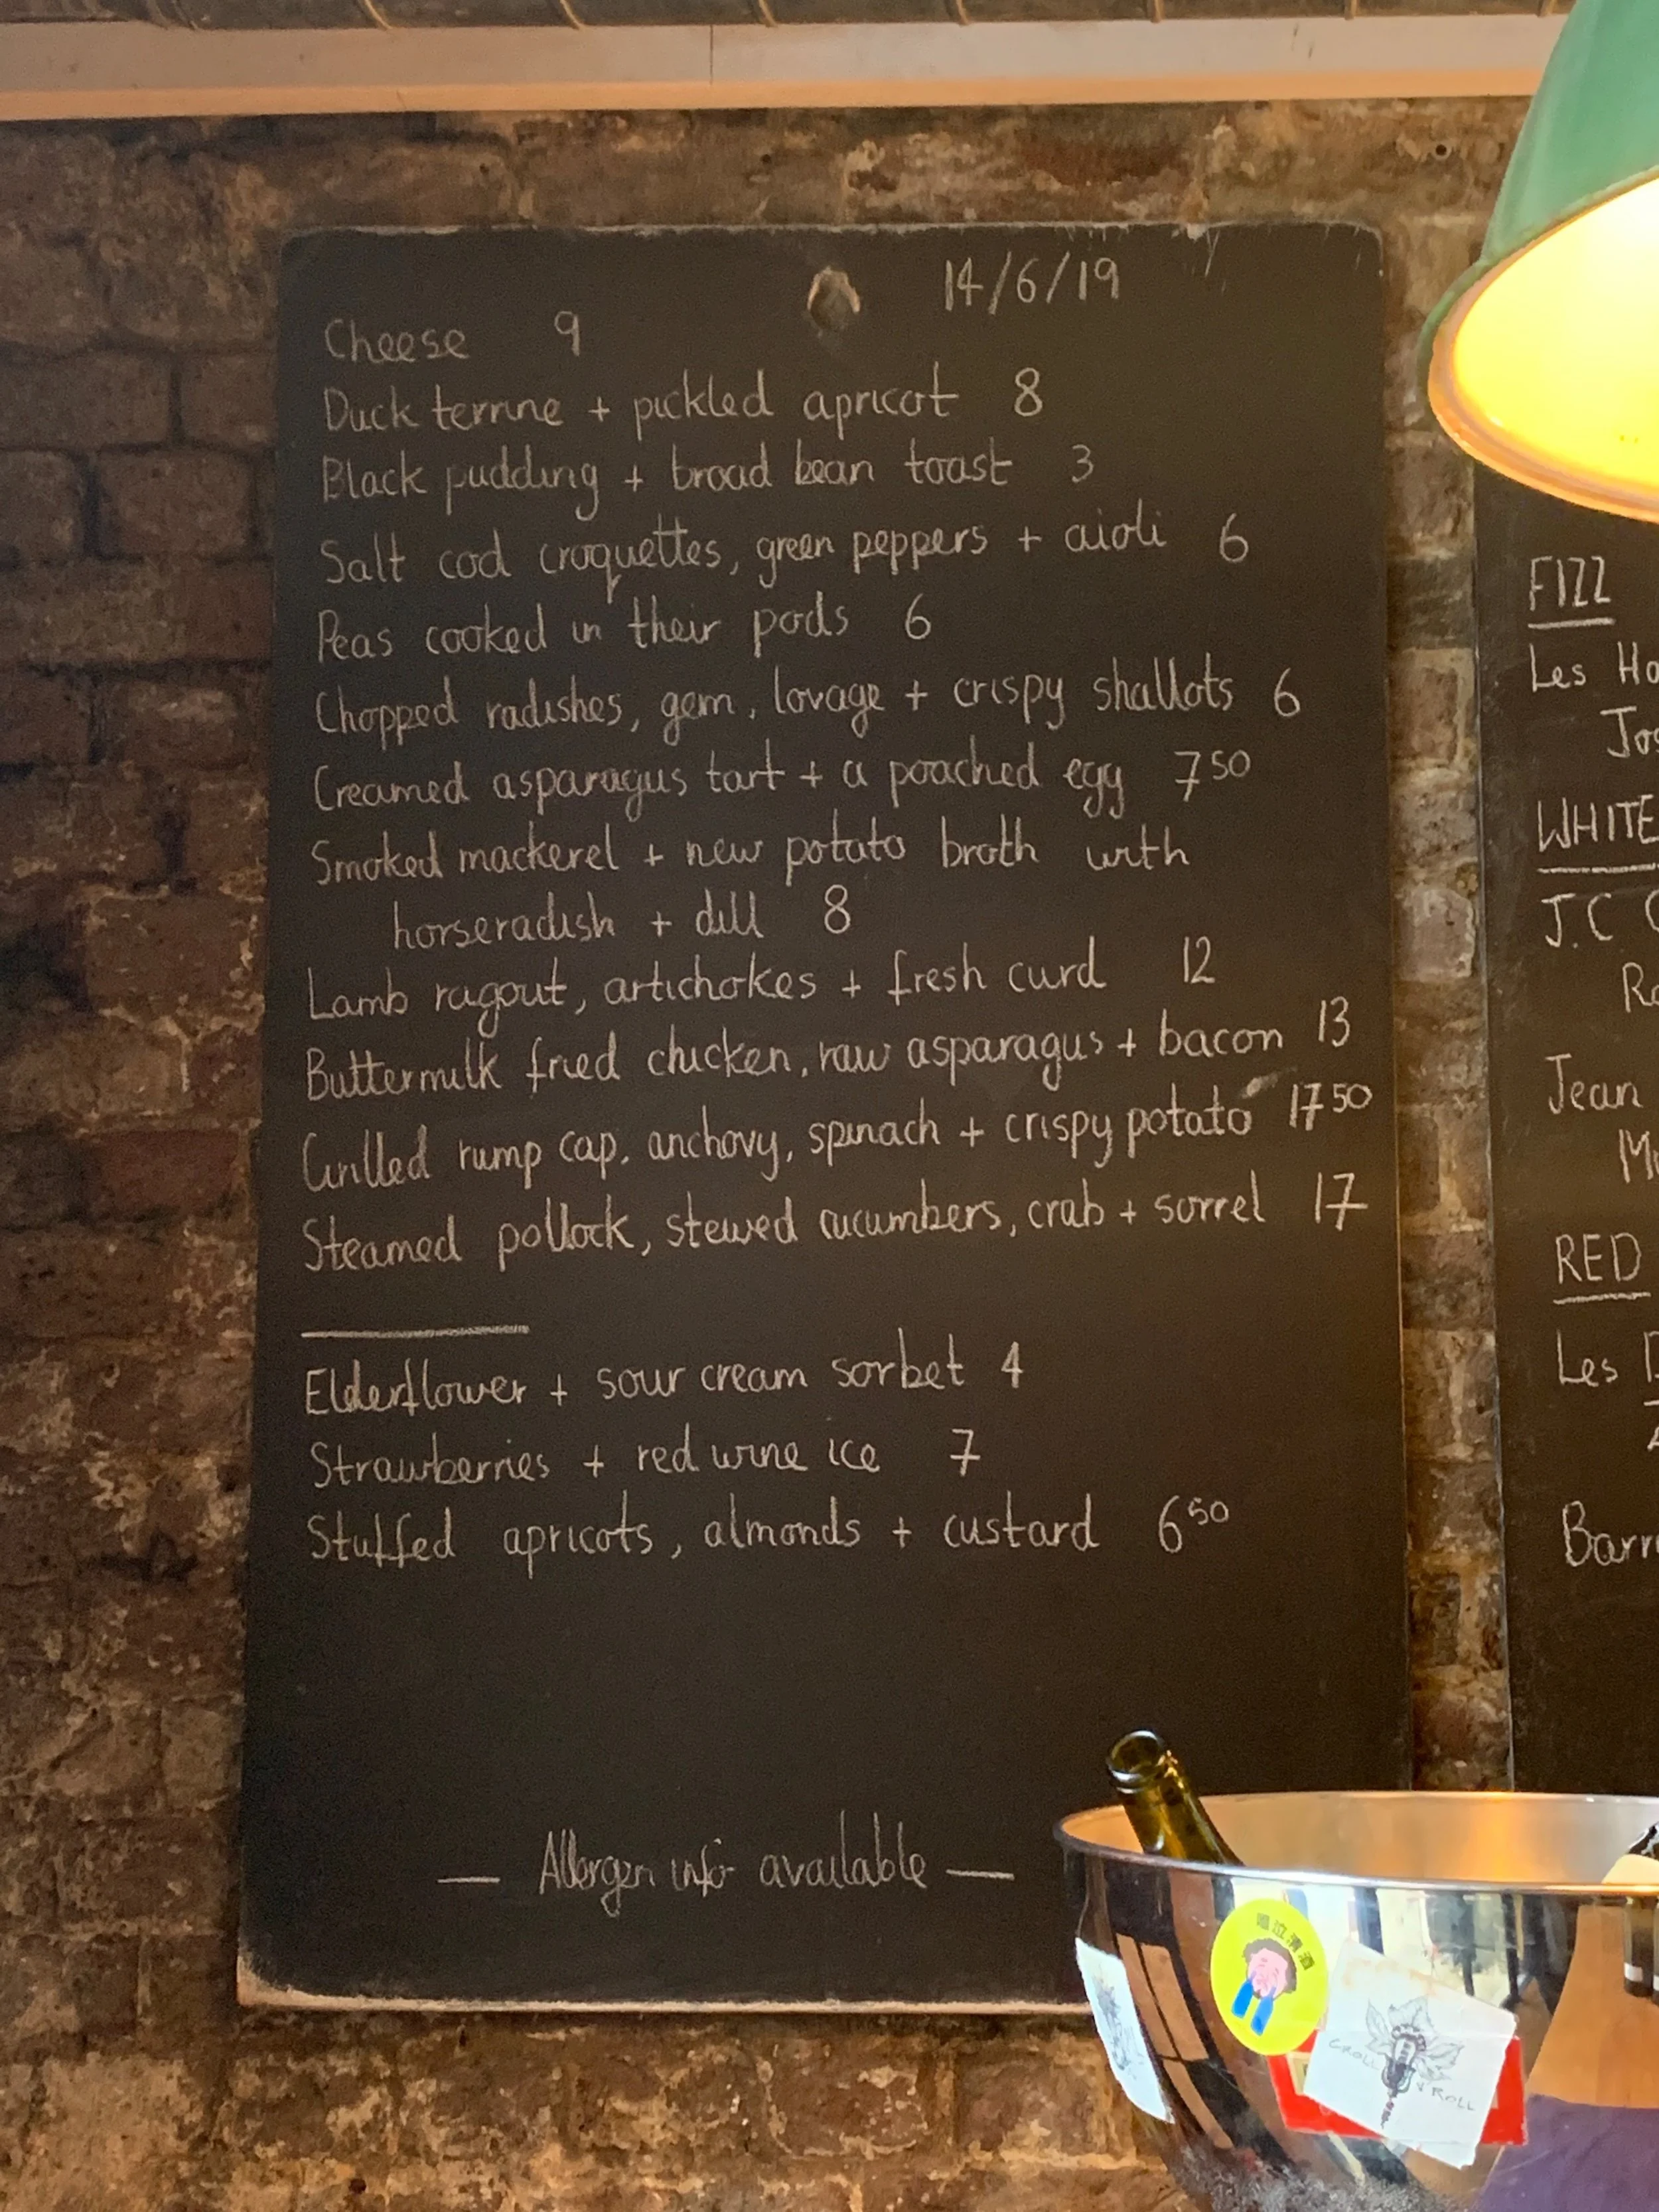 14/6/19
Cheese 9
Duck terrine + pickled apricot 8
Black pudding + broad bean toast 3
Salt cod croquettes, green peppers + aioli 6
Peas cooked in their pods 6
Chopped radishes, gem, lovage + crispy shallots 6
Creamed asparagus tart + a poached egg 7 50
Smoked mackerel + new potato broth with
horseradish + dill 8
Lamb ragout, artichokes + fresh curd 12
Buttermilk fried chicken, raw asparagus + bacon 13
Grilled rump cap, anchovy, spinach + crispy potato 17 50
Steamed pollock, stewed cucumbers, crab + sorrel 17
Elderflower + sour cream sorbet 4
Strawberries + red wine ice 7
Stuffed apricots, almonds + custard 6 50
— Allergen info available —
FIZZ
Les Ho
Jos
WHITE
J.C
Ro
Jean
RED
Les
Barr
GROLL
ROLL